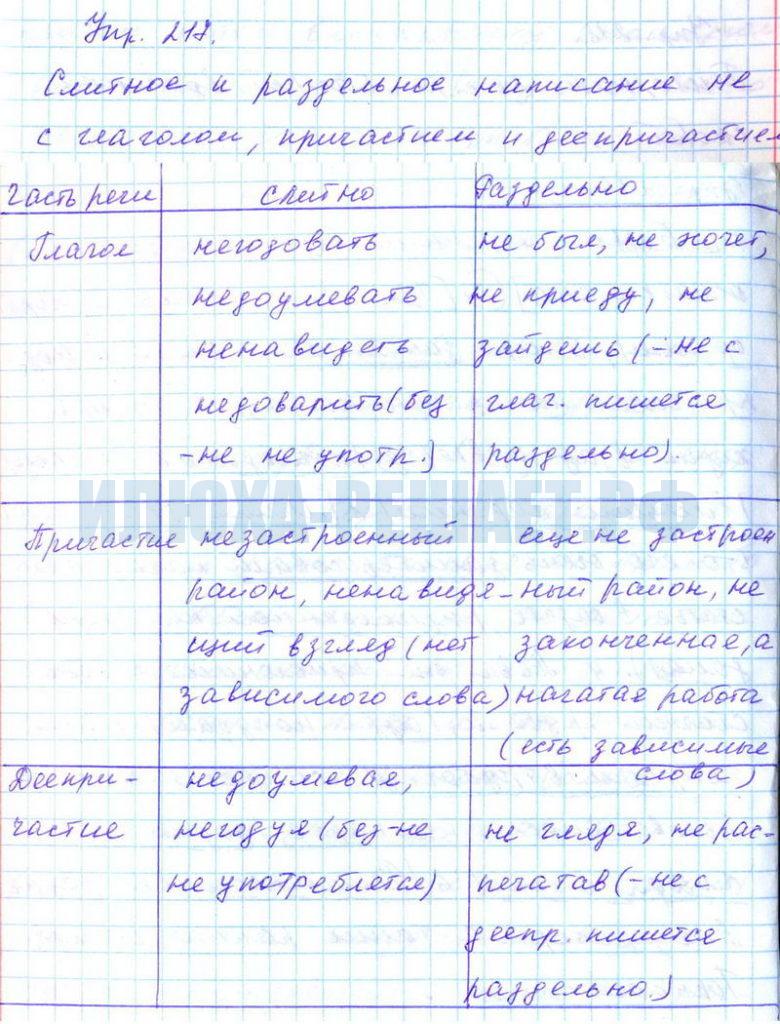 Упр. 217.
Слитное и раздельное написание не
с глаголом, причастием и деепричастием
Часть речи слитно Раздельно
Глагол негодовать не был, не хочет,
недоумевать не приеду, не
ненавидеть зайдешь (-не с
недоварить (без глаг. пишется
-не не употр.) раздельно).
ИЛЮХА-РЕШАЕТ.РФ
Причастие незастроенный еще не застроен
район, ненавидя- ный район, не
щий взгляд (нет законченная, а
зависимого слова) начатая работа
(есть зависимые
Деепри- недоумевая, слова)
частие негодуя (без-не не глядя, не рас-
не употребляется) печатав (-не с
деепр. пишется
раздельно.)